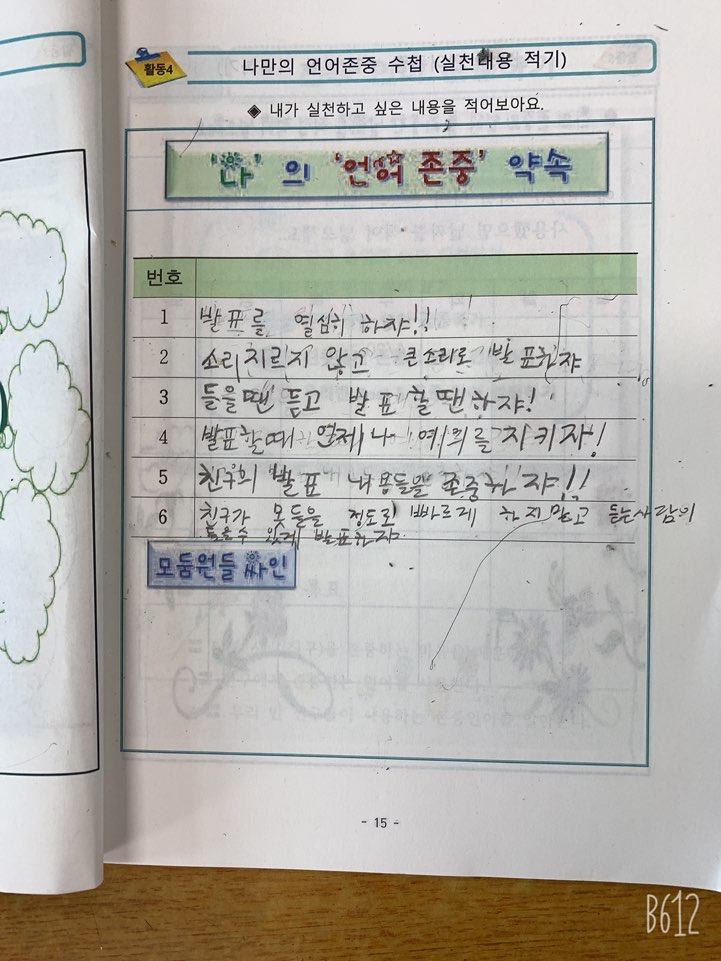 활동4
나만의 언어존중 수첩 (실천내용 적기)
◈ 내가 실천하고 싶은 내용을 적어보아요.
'나' 의 '언어 존중' 약속
번호
1 발표를 열심히 하쟈!!
2 소리지르지 않고 큰소리로 발표하쟈
3 들을땐 듣고 발표할땐하쟈!
4 발표할때 언제나 예의를 지키자!
5 친구의 발표 내용들을 존중하쟈!!
6 친구가 못들을 정도로 빠르게 하지말고 듣는사람이
들을수 있게 발표하자
모둠원들 싸인
- 15 -
B612